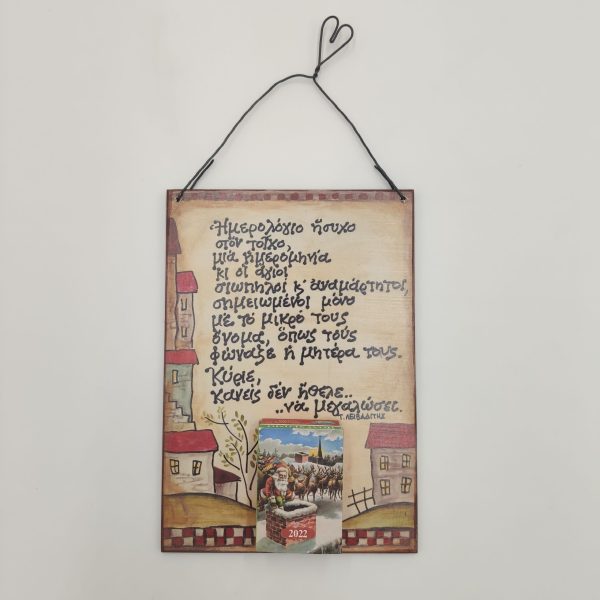 Ἡμερολόγιο ἥσυχο
στὸν τοῖχο,
μιὰ ἡμερομηνία
κι οἱ ἅγιοι
σιωπηλοὶ κ' ἀναμάρτητοι,
σημειωμένοι μόνο
μὲ τὸ μικρό τους
ὄνομα, ὅπως τοὺς
φώναζε ἡ μητέρα τους.
Κύριε,
κανεὶς δὲν ἤθελε..
..νὰ μεγαλώσει.
Τ. ΛΕΙΒΑΔΙΤΗΣ
2022